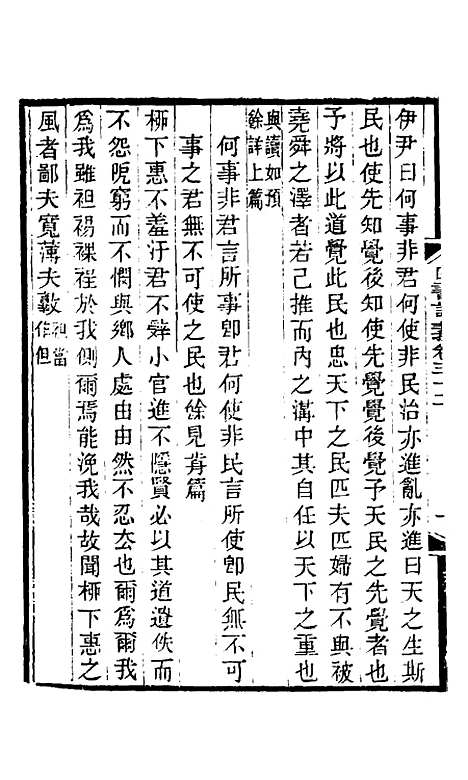 伊尹曰何事非君何使非民治亦進亂亦進曰天之生斯
民也使先知覺後知使先覺覺後覺予天民之先覺者也
予將以此道覺此民也忠天下之民匹夫匹婦有不與被
堯舜之澤者若己推而內之溝中其自任以天下之重也
與讀如預
餘詳上篇
何事非君言所事卽君何使非民言所使卽民無不可
事之君無不可使之民也餘見前篇
柳下惠不羞汙君不辭小官進不隱賢必以其道遺佚而
不怨阨窮而不憫與鄉人處由由然不忍去也爾爲爾我
爲我雖袒裼裸裎於我側爾焉能浼我哉故聞柳下惠之
風者鄙夫寬薄夫敦
袒當
作但